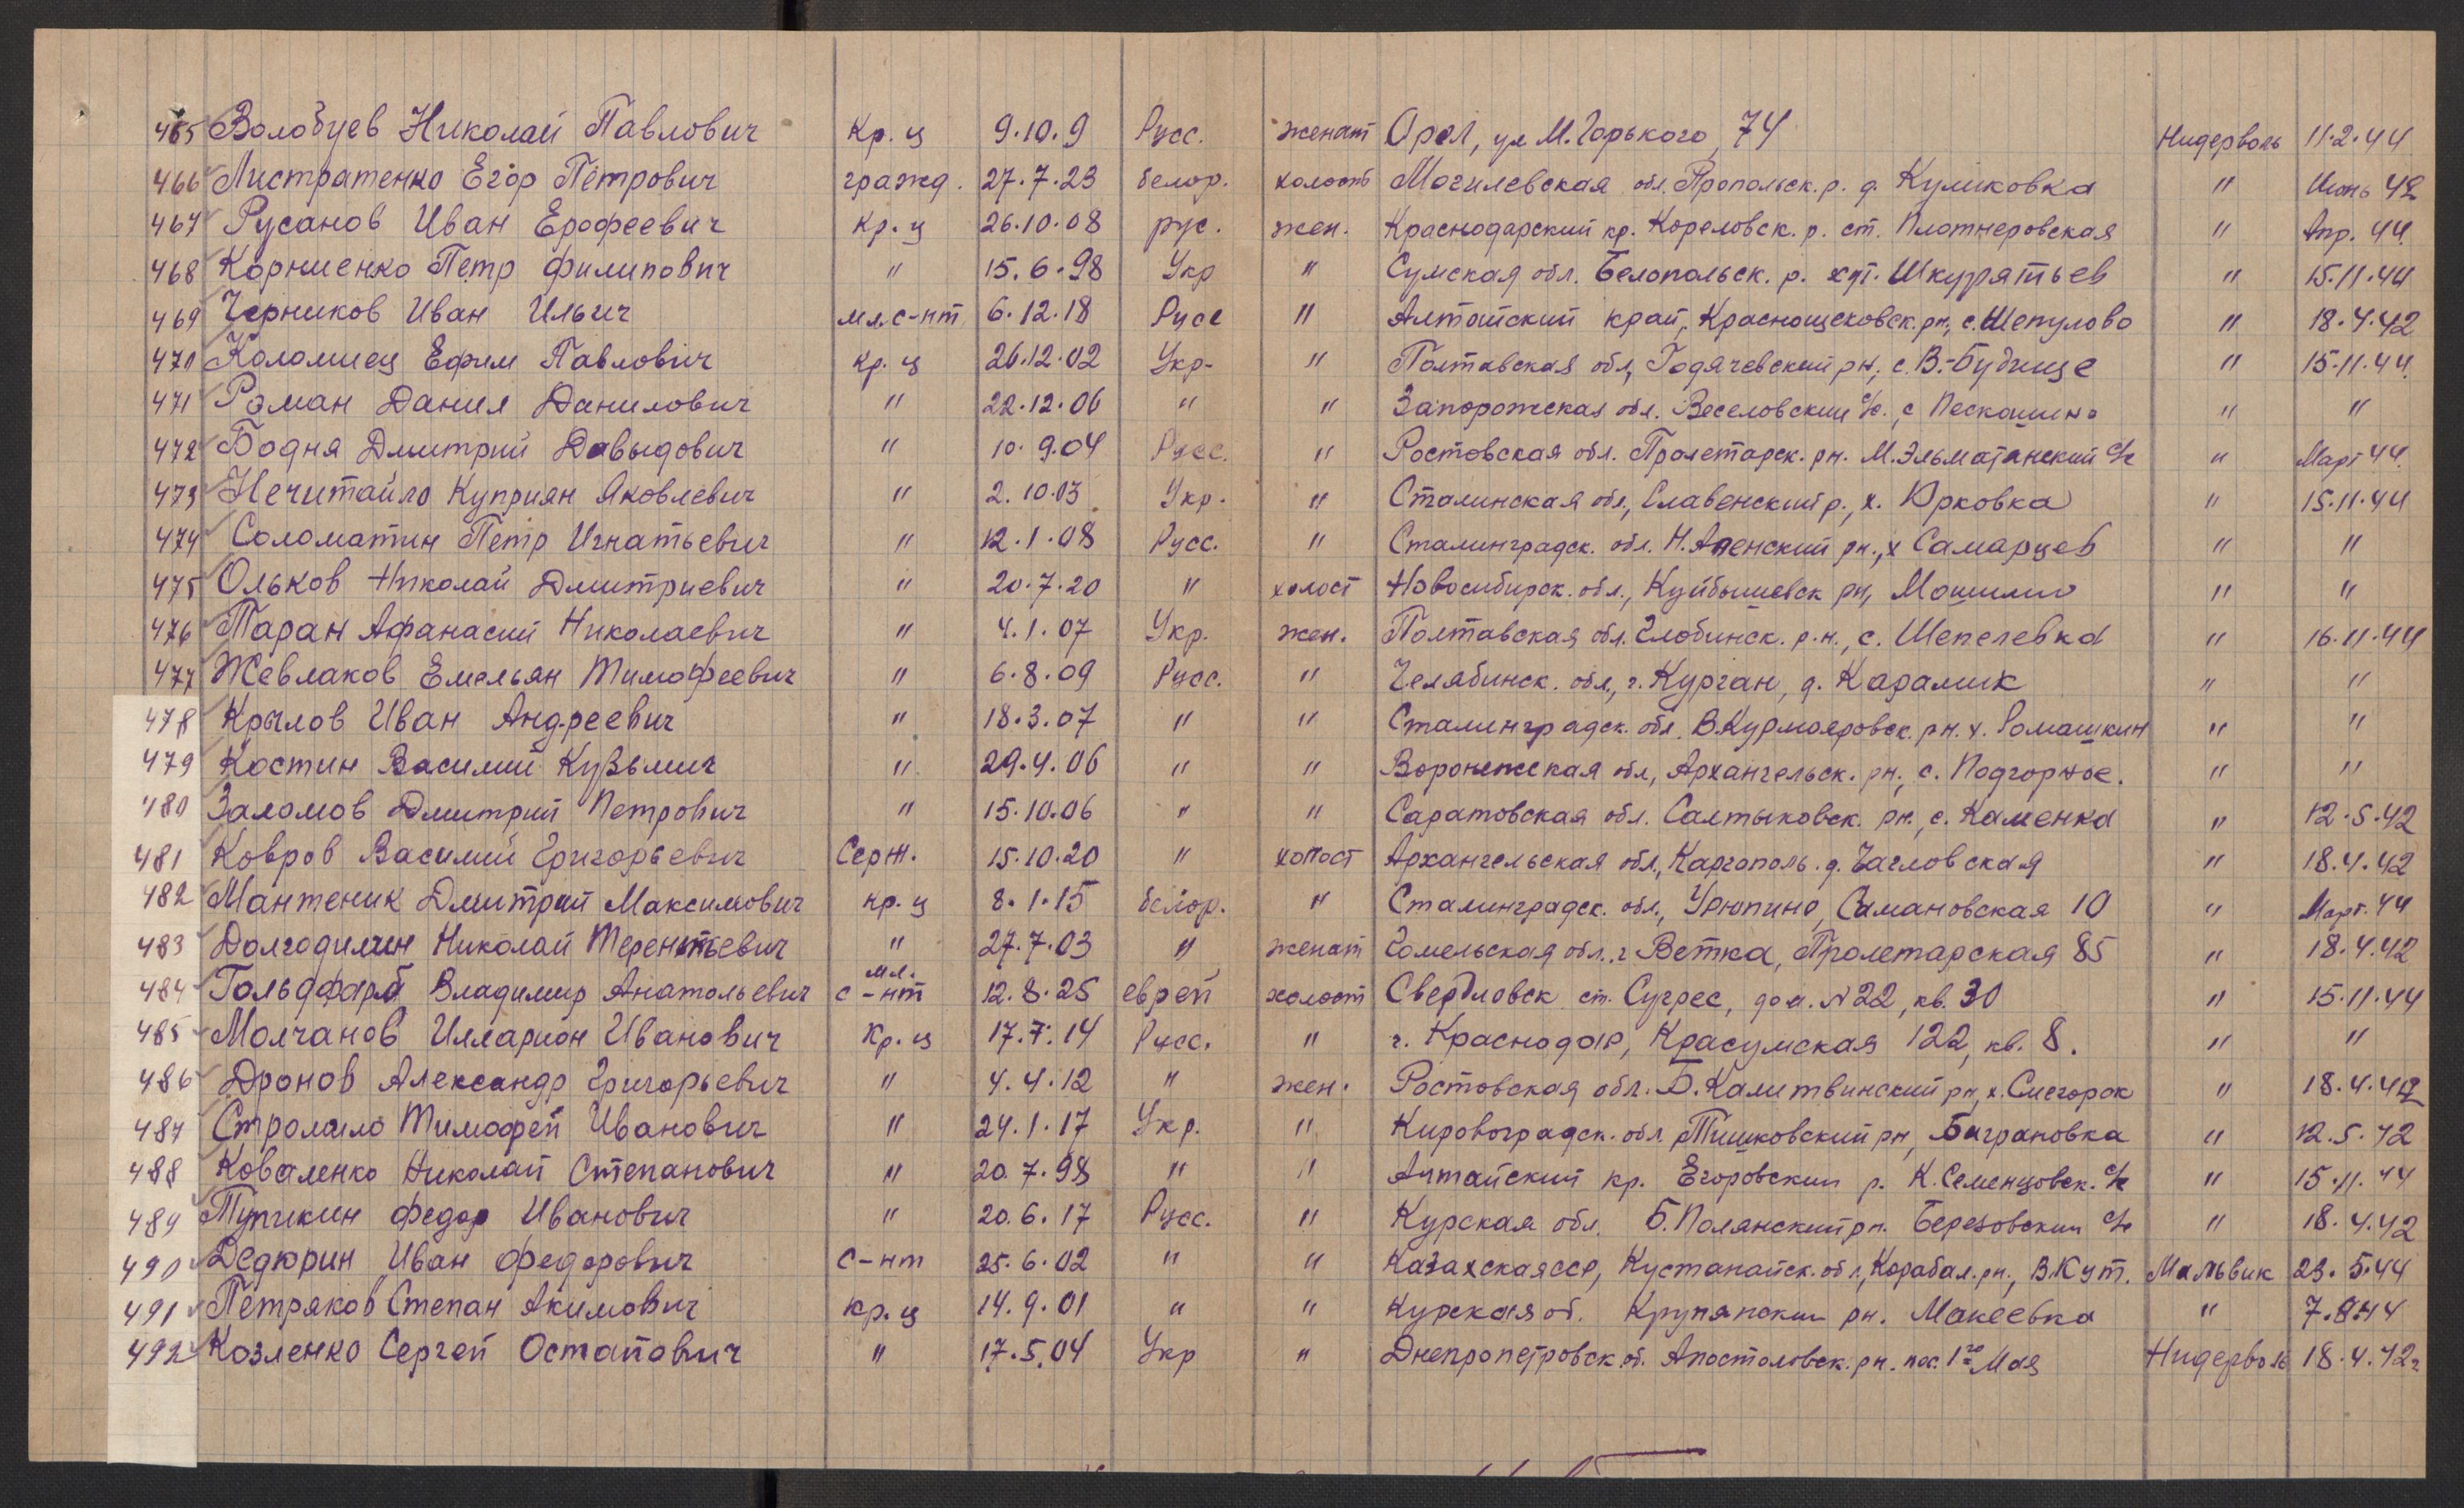 465 Волобуев Николай Павлович Кр. ц 9.10.9 Русс. женат Орел, ул М. Горького, 74 Нидерволь 11.2.44
466 Листратенко Егор Петрович гражд. 27.7.23 белор. холост Могилевская обл. Пропольск. р. д. Куликовка " Июнь 42
467 Русанов Иван Ерофеевич Кр. ц 26.10.08 рус. жен. Краснодарский кр. Кореловск. р. ст. Плотнеровская " Апр. 44
468 Корниенко Петр Филипович " 15.6.98 Укр " Сумская обл. Белопольск. р. хут. Шкурятьев " 15.11.44
469 Черников Иван Ильич мл. с-нт 6.12.18 Русс " Алтайский край, Краснощековск. рн, с. Шепулово " 18.4.42
470 Коломиец Ефим Павлович Кр. ц 26.12.02 Укр- " Полтавская обл, Годячевский рн, с. В.-Будище " 15.11.44.
471 Роман Данил Данилович " 22.12.06 " " Запорожская обл. Веселовский с/с., с Пескошино " "
472 Бодня Дмитрий Давыдович " 10.9.04 Русс. " Ростовская обл. Пролетарск. рн. М. Эльматанский с/с " Март 44.
473 Нечитайло Куприян Яковлевич " 2.10.03 Укр. " Сталинская обл., Славенский р., х. Юрковка " 15.11.44
474 Соломатин Петр Игнатьевич " 12.1.08 Русс. " Сталинградск. обл. Н. Аненский рн., х Самарцев " "
475 Ольков Николай Дмитриевич " 20.7.20 " холост Новосибирск. обл., Куйбышевск рн, " "
476 Таран Афанасий Николаевич " 4.1.07 Укр. жен. Полтавская обл. Глобинск. р.н., с. Шепелевка " 16.11.44
477 Жевлаков Емельян Тимофеевич " 6.8.09 Русс. " Челябинск. обл., г. Курган, д. Карамик " "
478 Крылов Иван Андреевич " 18.3.07 " " Сталинградск. обл. В. Курмояровск. рн. х. Ромашкин " "
479 Костин Василий Кузьмич " 29.4.06 " " Воронежская обл, Архангельск. рн., с. Подгорное. " "
480 Заломов Дмитрий Петрович " 15.10.06 " " Саратовская обл. Салтыковск. рн., с. Каменка " 12.5.42
481 Ковров Василий Григорьевич Серж. 15.10.20 " холост Архангельская обл., Каргополь. д. Чагловская " 18.4.42
482 Мантеник Дмитрий Максимович кр. ц 8.1.15 белор. " Сталинградск. обл., Урюпино, Самановская 10 " Март. 44
483 Долгодилин Николай Терентьевич " 27.7.03 " женат Гомельская обл., г Ветка, Пролетарская 85 " 18.4.42
484 Гольдфарб Владимир Анатольевич мл. с-нт 12.8.25 еврей холост Свердловск ст. Сугрес, дом. N 22, кв. 30 " 15.11.44
485 Молчанов Илларион Иванович Кр. ц 17.7.14 Русс. " г. Краснодар, Красумская 122, кв. 8. " "
486 Дронов Александр Григорьевич " 4.4.12 " жен. Ростовская обл. Б. Калитвинский рн, х. " 18.4.42
487 Стромило Тимофей Иванович " 24.1.17 Укр. " Кировоградск. обл. Тишковский рн, Баграновка " 12.5.42
488 Коваленко Николай Степанович " 20.7.98 " " Алтайский кр. Егоровский р. К. Семенцовск. с/с " 15.11.44
489 Тупикин Федор Иванович " 20.6.17 Русс. " Курская обл. Б. Полянский рн. Березовский с/с " 18.4.42
490 Дедюрин Иван Федорович с-нт 25.6.02 " " Казахская ССР, Кустанайск. обл, Карабал. рн., В. Кут. Мальвик 23.5.44
491 Петряков Степан Акимович кр. ц 14.9.01 " " Курская об. рн. Макеевка " 7.8.44
492 Козленко Сергей Остапович " 17.5.04 Укр " Днепропетровск. об. Апостоловск. рн. пос. 1го Мая Нидерволь 18.4.42г